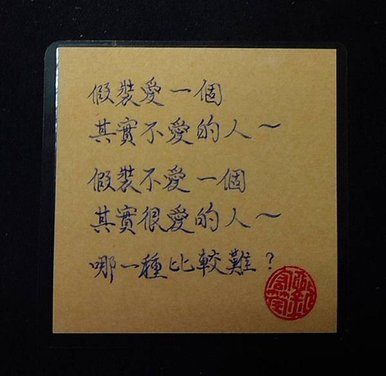 假裝愛一個
其實不愛的人～
假裝不愛一個
其實很愛的人～
哪一種比較難？